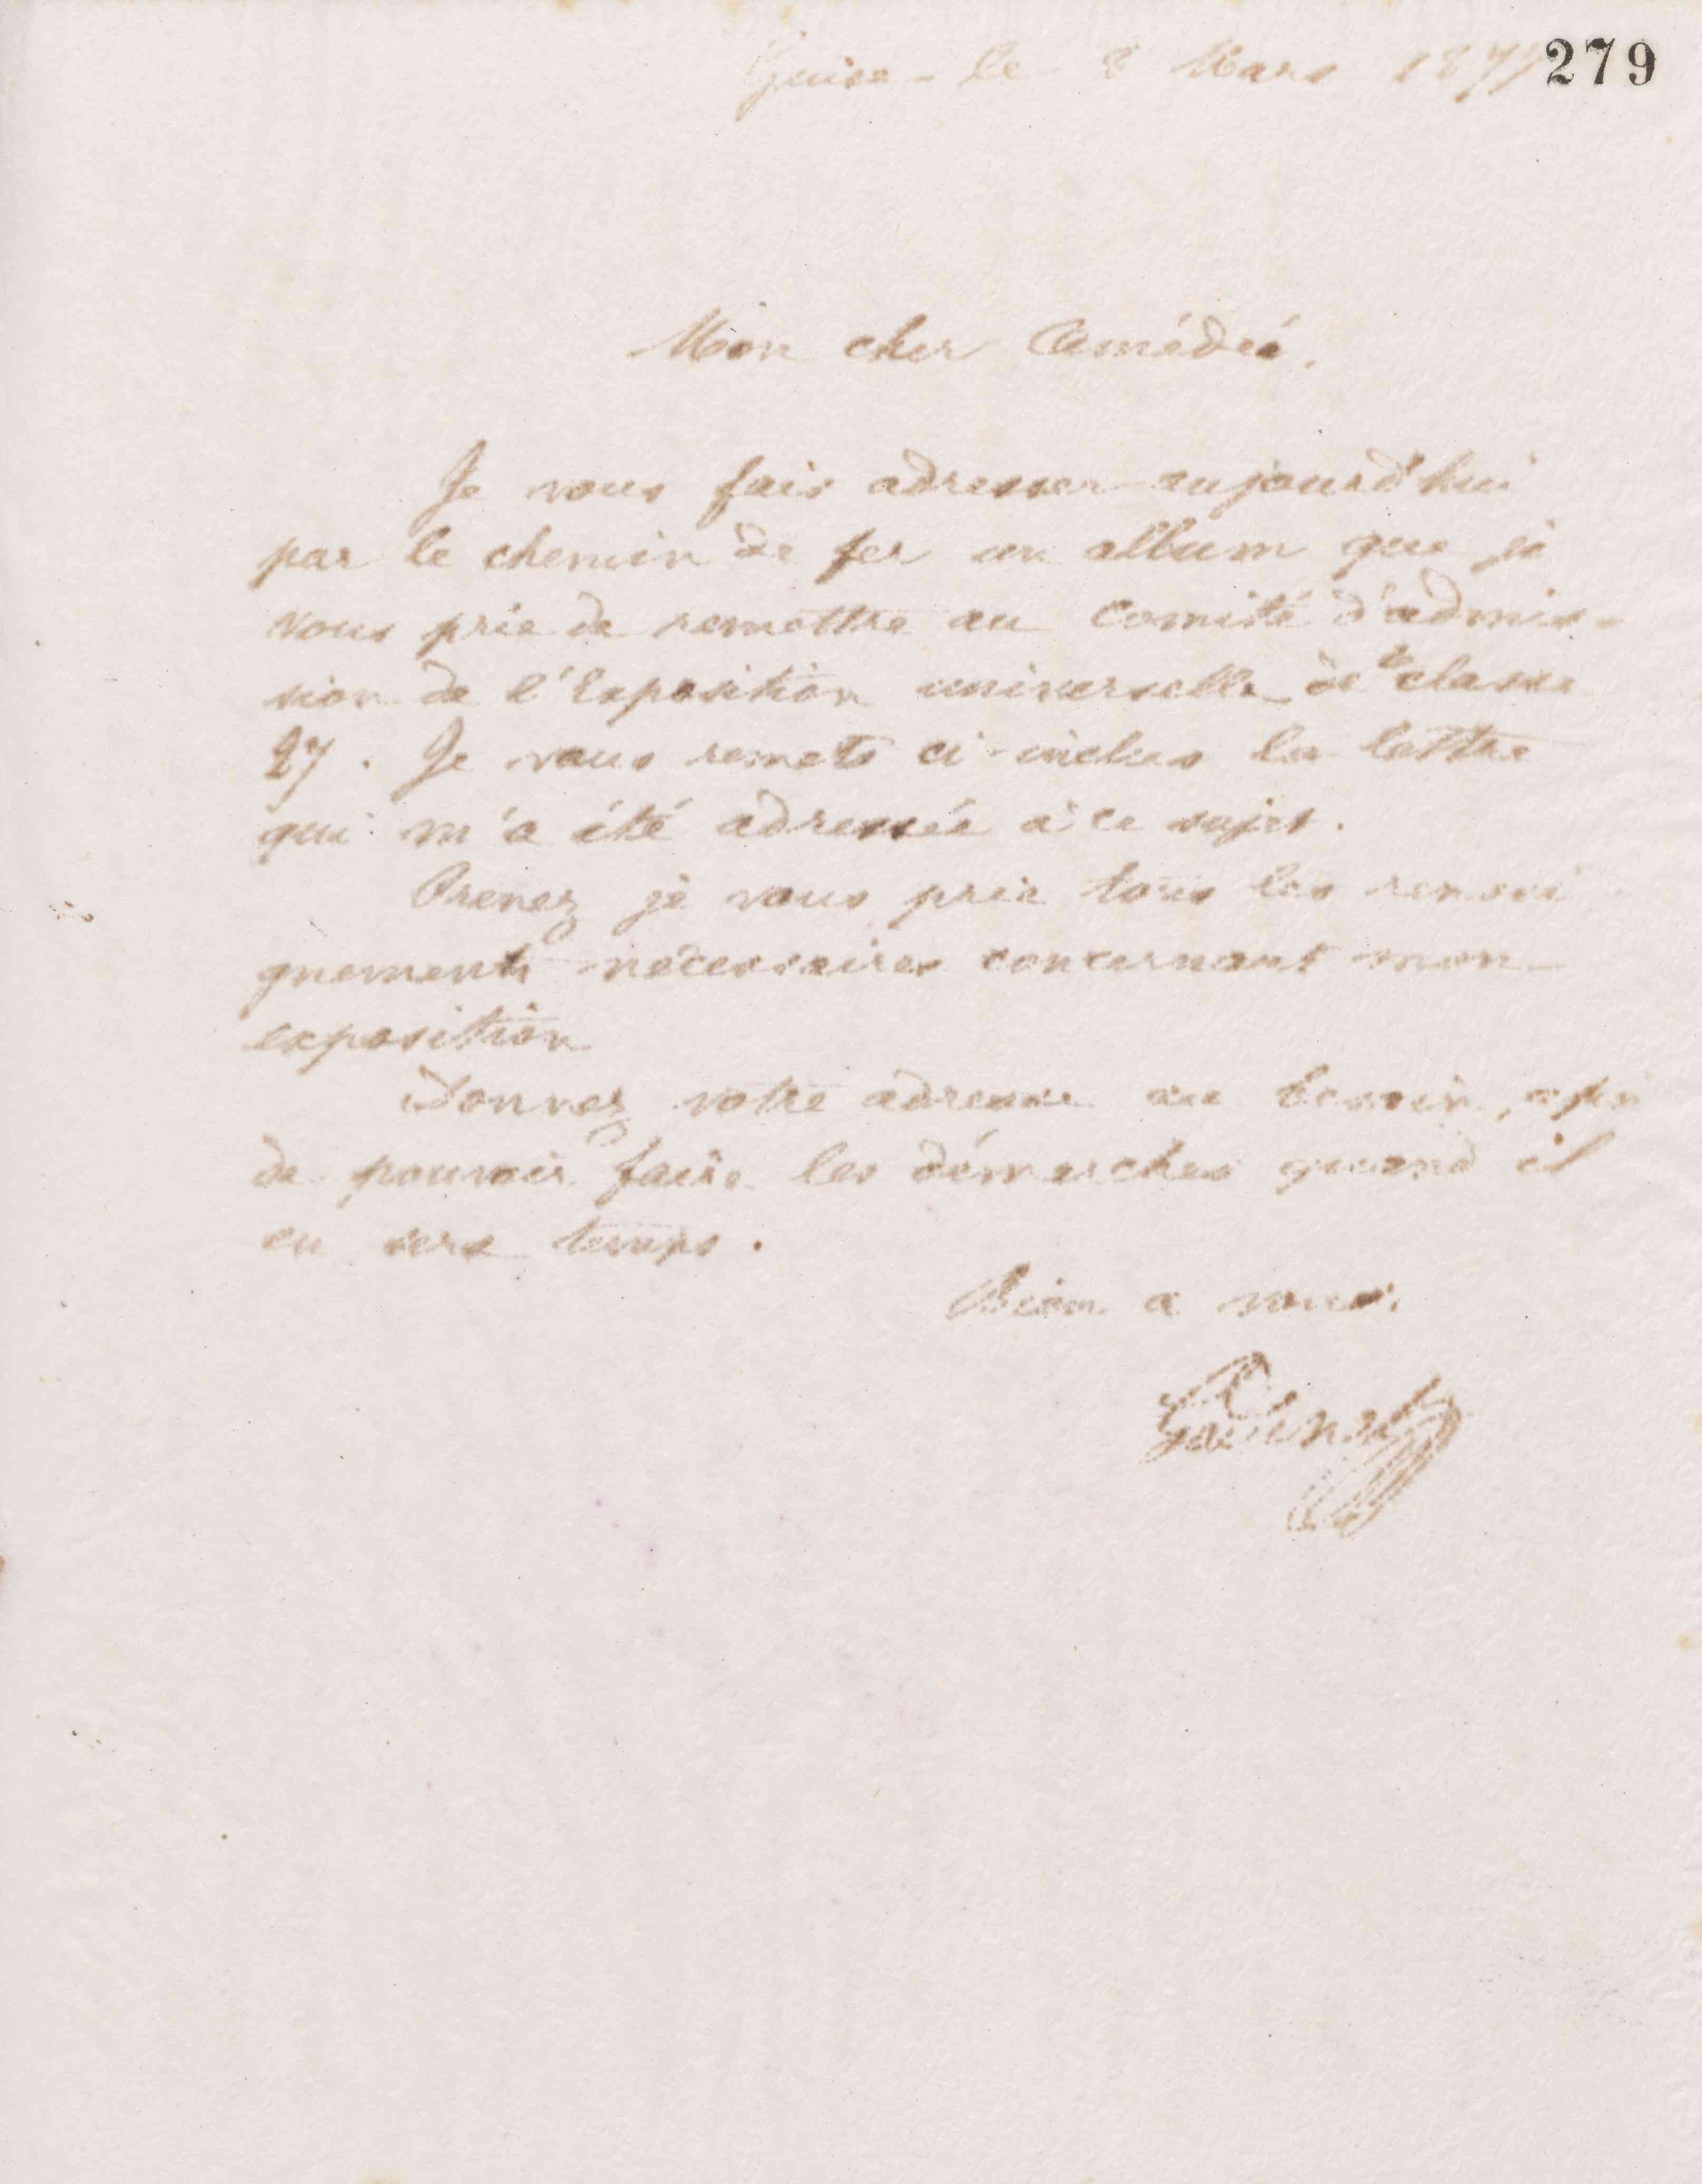 Guise le 8 Mars 1877
279
Mon cher Amédée,
Je vous fais adresser aujourd'hui
par le chemin de fer un album que je
vous prie de remettre au Comité d'admis-
sion de l'Exposition universelle de la classe
27. Je vous remets ci-inclus la lettre
qui m'a été adressée à ce sujet.
Prenez je vous prie tous les rensei
gnements nécessaires concernant mon
exposition
Donnez votre adresse au besoin, afin
de pouvoir faire les démarches quand il
en sera temps.
Bien a vous.
Godin